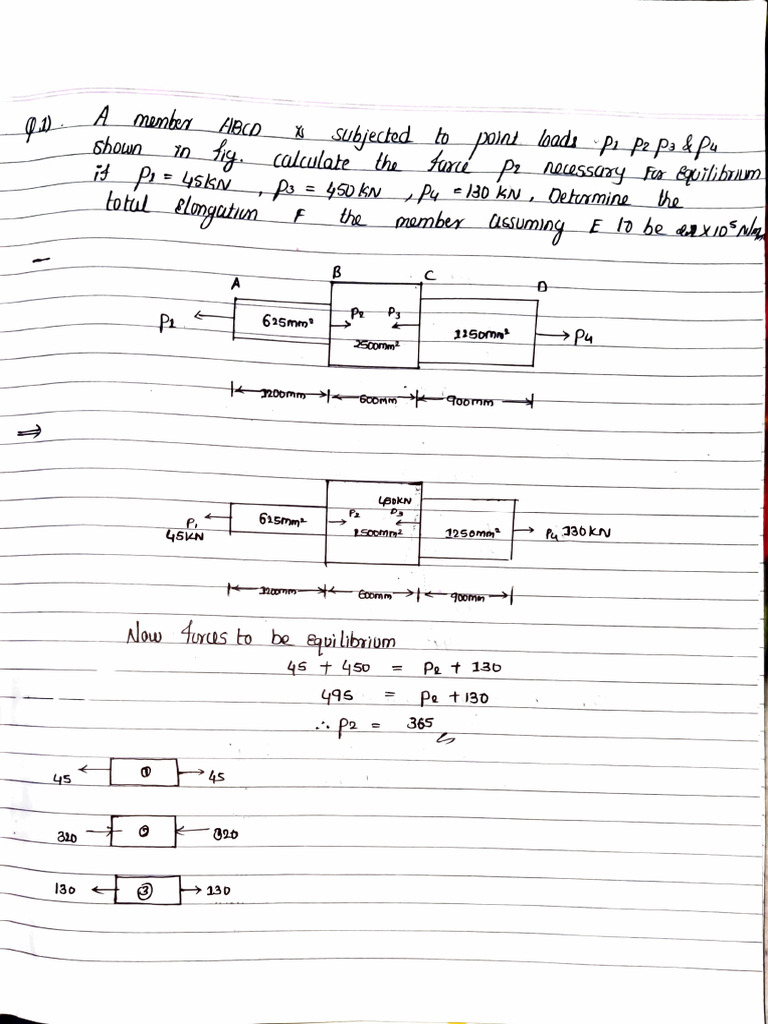 Q.1). A member ABCD is subjected to point loads P1 P2 P3 & P4
shown in fig. calculate the force P2 necessary for equilibrium
if P1 = 45KN , P3 = 450 KN , P4 = 130 KN , Determine the
total elongation F the member assuming E to be × 10⁵ N/
A B C D
P1 625mm² P2 P3 2500mm² 1250mm² P4
1200mm 600mm 900mm
⇒
P1 45KN 625mm² P2 450KN P3 2500mm² 1250mm² P4 130 KN
1200mm 600mm 900mm
Now forces to be equilibrium
45 + 450 = P2 + 130
495 = P2 + 130
∴ P2 = 365
45 ① 45
320 ② 320
130 ③ 130